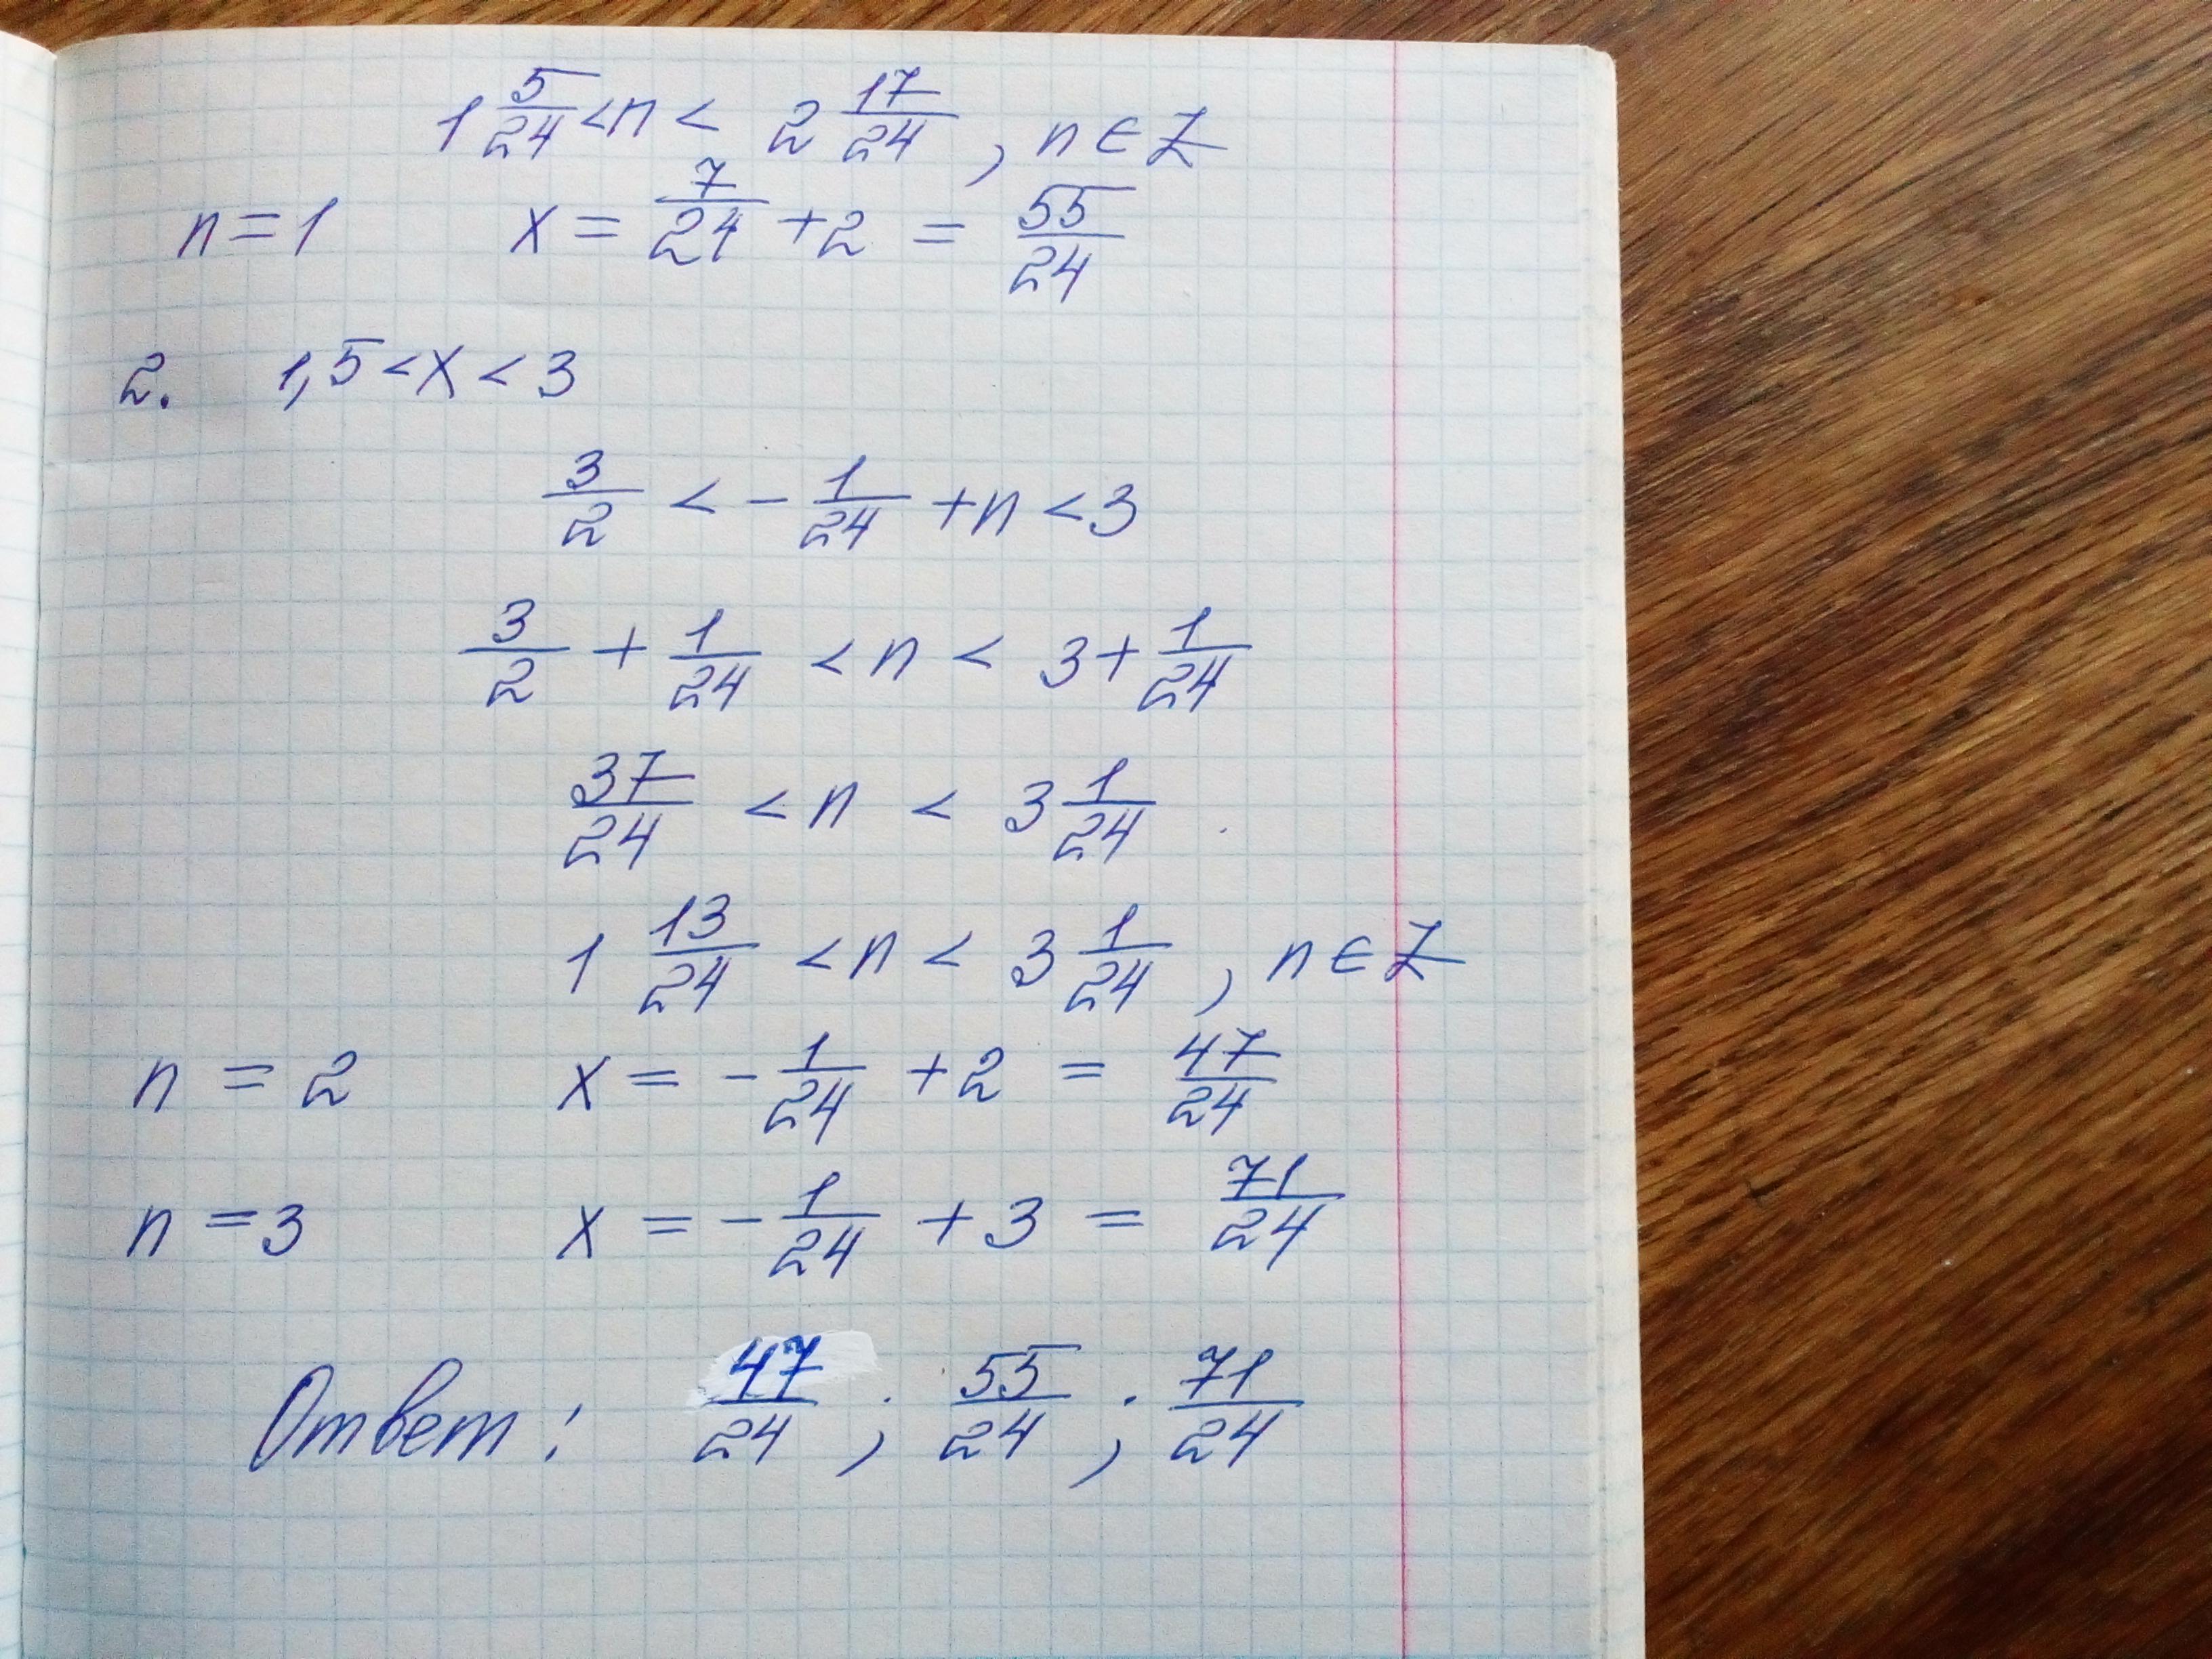 1 5/24 < n < 2 17/24, n ∈ Z
n = 1 x = 7/24 + 2 = 55/24
2. 1,5 < x < 3
3/2 < - 1/24 + n < 3
3/2 + 1/24 < n < 3 + 1/24
37/24 < n < 3 1/24
1 13/24 < n < 3 1/24, n ∈ Z
n = 2 x = - 1/24 + 2 = 47/24
n = 3 x = - 1/24 + 3 = 71/24
Ответ: 47/24; 55/24; 71/24